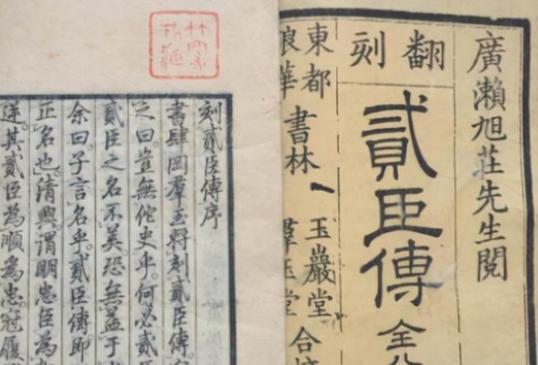 廣瀨旭莊先生閱
翻刻
貳臣傳 全
東都 浪華 書林 玉巖堂 羣玉堂 合
刻貳臣傳序
書肆岡羣玉將刻貳臣傳。
之曰。豈無佗史乎。何必貳
貳臣之名不美。恐無益于
余曰。子言名乎。貳臣傳即
正名也。清興。謂明忠臣為
逆。其貳臣為順為忠。冠履